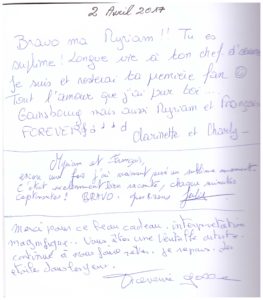 2 Avril 2017
Bravo ma Myriam !! Tu es
sublime ! Longue vie à ton chef d'œuvre
Je suis et resterai ta première fan ☺
Tout l'amour que j'ai pour toi...
Gainsbourg mais aussi Myriam et François
FOREVER
Clarinette et Charly
Myriam et François,
encore une fois j'ai vraiment eu un sublime moment
C'était excellemment bien raconté, chaque minutes
Captivantes ! BRAVO.
Merci pour ce beau cadeau. interprétation
magnifique.. Vous êtes une véritable artiste.
continue à nous faire rêver. je repars des
étoile dans les yeux.